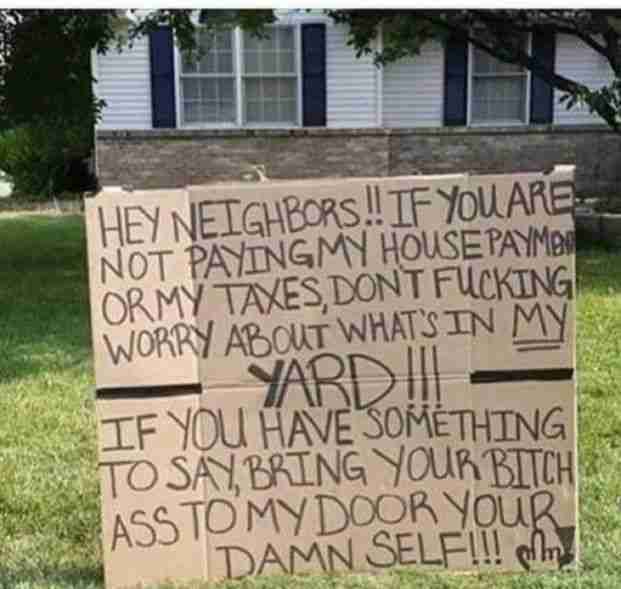 HEY NEIGHBORS!! IF YOU ARE
NOT PAYING MY HOUSE PAYMENT
OR MY TAXES, DON'T FUCKING
WORRY ABOUT WHAT'S IN MY
YARD!!!
IF YOU HAVE SOMETHING
TO SAY, BRING YOUR BITCH
ASS TO MY DOOR YOUR
DAMN SELF!!!